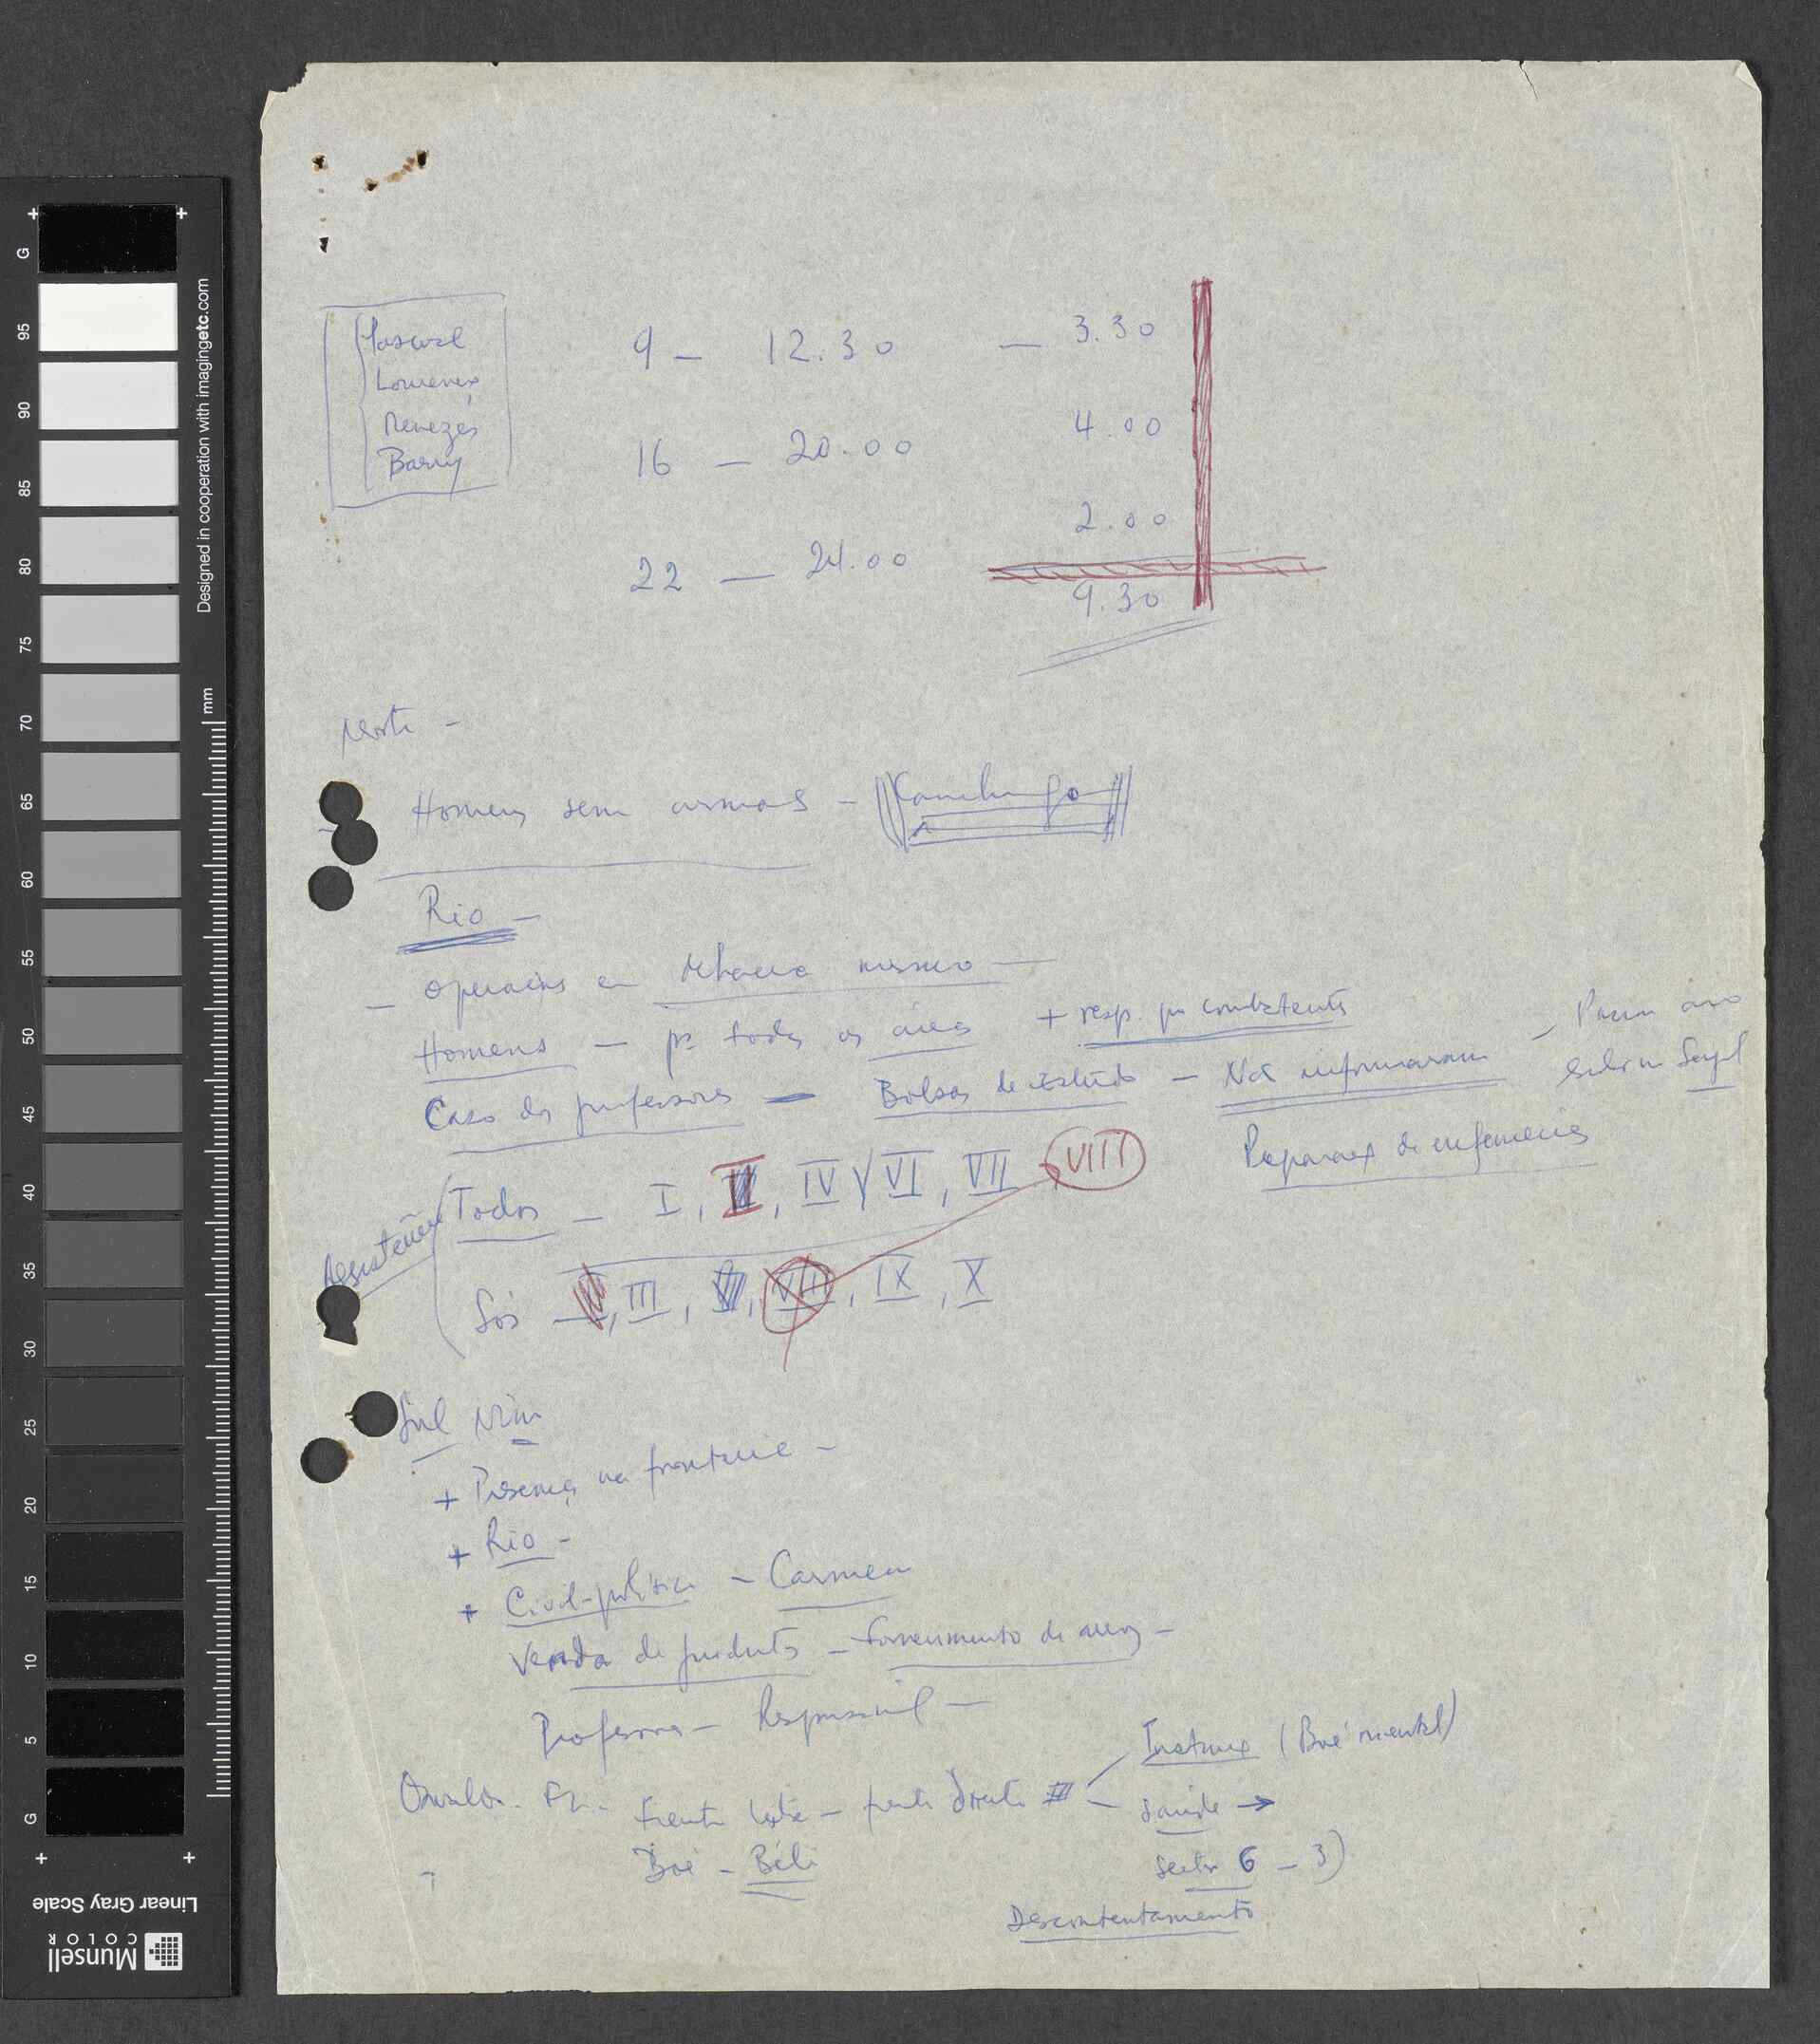 Lourenço
Menezes
Barry
9 — 12.30 — 3.30
16 — 20.00 4.00
22 — 24.00 2.00
9.30
Norte —
— Homens sem armas — Canchungo
Rio —
— Operações em mesmo —
Homens — pª todas as áreas + resp. por combatente
Caso dos professores — Bolsas de estudo — Não informaram
Preparação de enfermeiras
Assistência
Todos — I, II, IV V VI, VII VIII
Sós — III, VIII, IX, X
Sul Nino
+ Presença na fronteira —
+ Rio —
+ Civil-política — Carmen
Venda de produtos — Fornecimento de arroz —
Professores — Responsável —
Osvaldo. Fr. Frente Leste — frente
Instrução (Boé oriental)
Saúde →
Boé — Béli
Sector 6 — 3)
Descontentamento
G 95 90 85 80 75 70 65 60 55 50 45 40 35 30 25 20 15 10 5 G
mm
Designed in cooperation with imagingetc.com
Linear Gray Scale
Munsell
COLOR